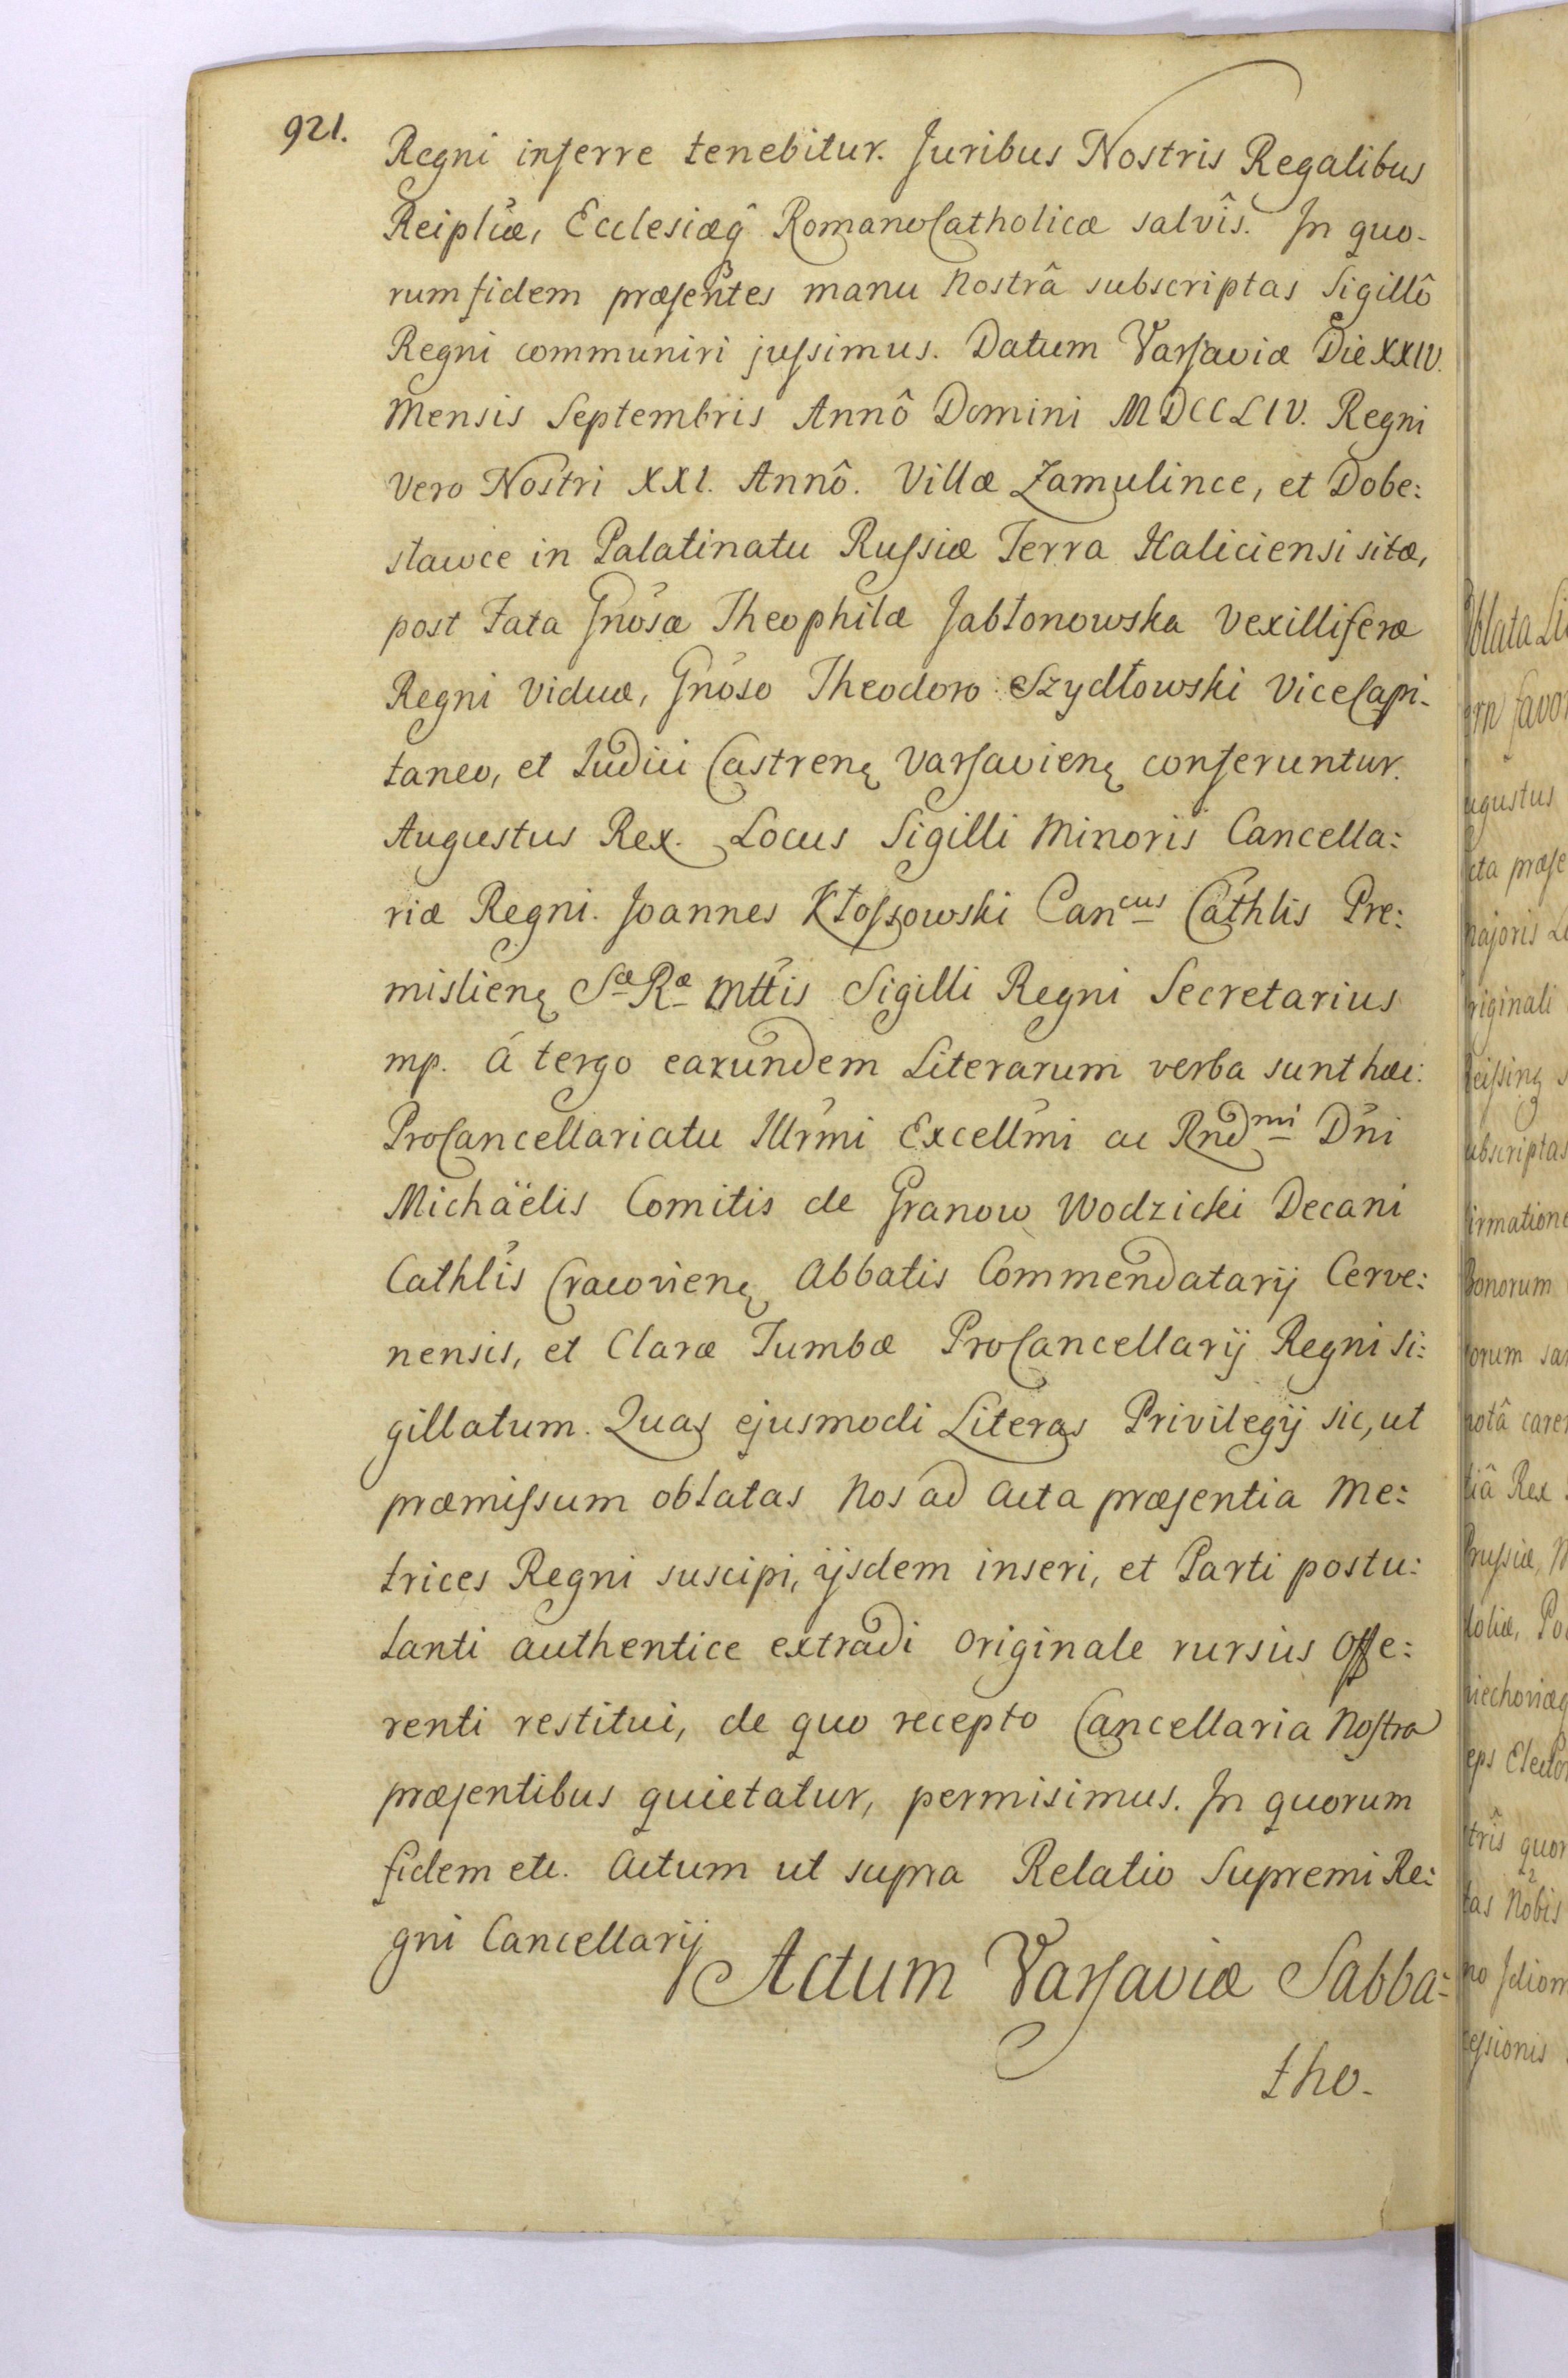 921.
Regni inferre tenebitur. Juribus Nostris Regalibus
Reiplicæ, Ecclesiæq̂ RomanoCatholicæ salvîs. In quo-
rum fidem præsentes manu Nostrâ subscriptas Sigillô
Regni communiri jussimus. Datum Varsaviæ Die XXIV.
Mensis Septembris Annô Domini MDCCLIV. Regni
Vero Nostri XXI. Annô. Villæ Zamulince, et Dobe:
sławce in Palatinatu Russiæ Terra Haliciensi sitæ,
post Fata Gnosæ Theophilæ Jabłonowska Vexilliferæ
Regni Viduæ, Gnoso Theodoro Szydłowski ViceCapi-
taneo, et Judici Castrenę Varsavienę conferuntur.
Augustus Rex. Locus Sigilli Minoris Cancella:
riæ Regni. Joannes Kłossowski Can<sup>cus</sup> Cathlis Pre:
mislienę Sæ Ræ Mttis Sigilli Regni Secretarius
mp. á tergo earundem Literarum verba sunt hæc:
ProCancellariatu Illrmi Excellmi ac Rnd<sup>mi</sup> Dni
Michaëlis Comitis de Granow Wodzicki Decani
Cathlis Cracovienę Abbatis Commendatarij Cerve:
nensis, et Claræ Tumbæ ProCancellarij Regni Si:
gillatum. Quas ejusmodi Literas Privilegij sic, ut
præmissum oblatas Nos ad Acta præsentia Me:
trices Regni suscipi, ijsdem inseri, et Parti postu:
lanti authentice extradi originale rursus Offe:
renti restitui, de quo recepto Cancellaria Nostra
præsentibus quietatur, permisimus. In quorum
fidem etc. Actum ut supra Relatio Supremi Re:
gni Cancellarij
Actum Varsaviæ Sabba:
tho.